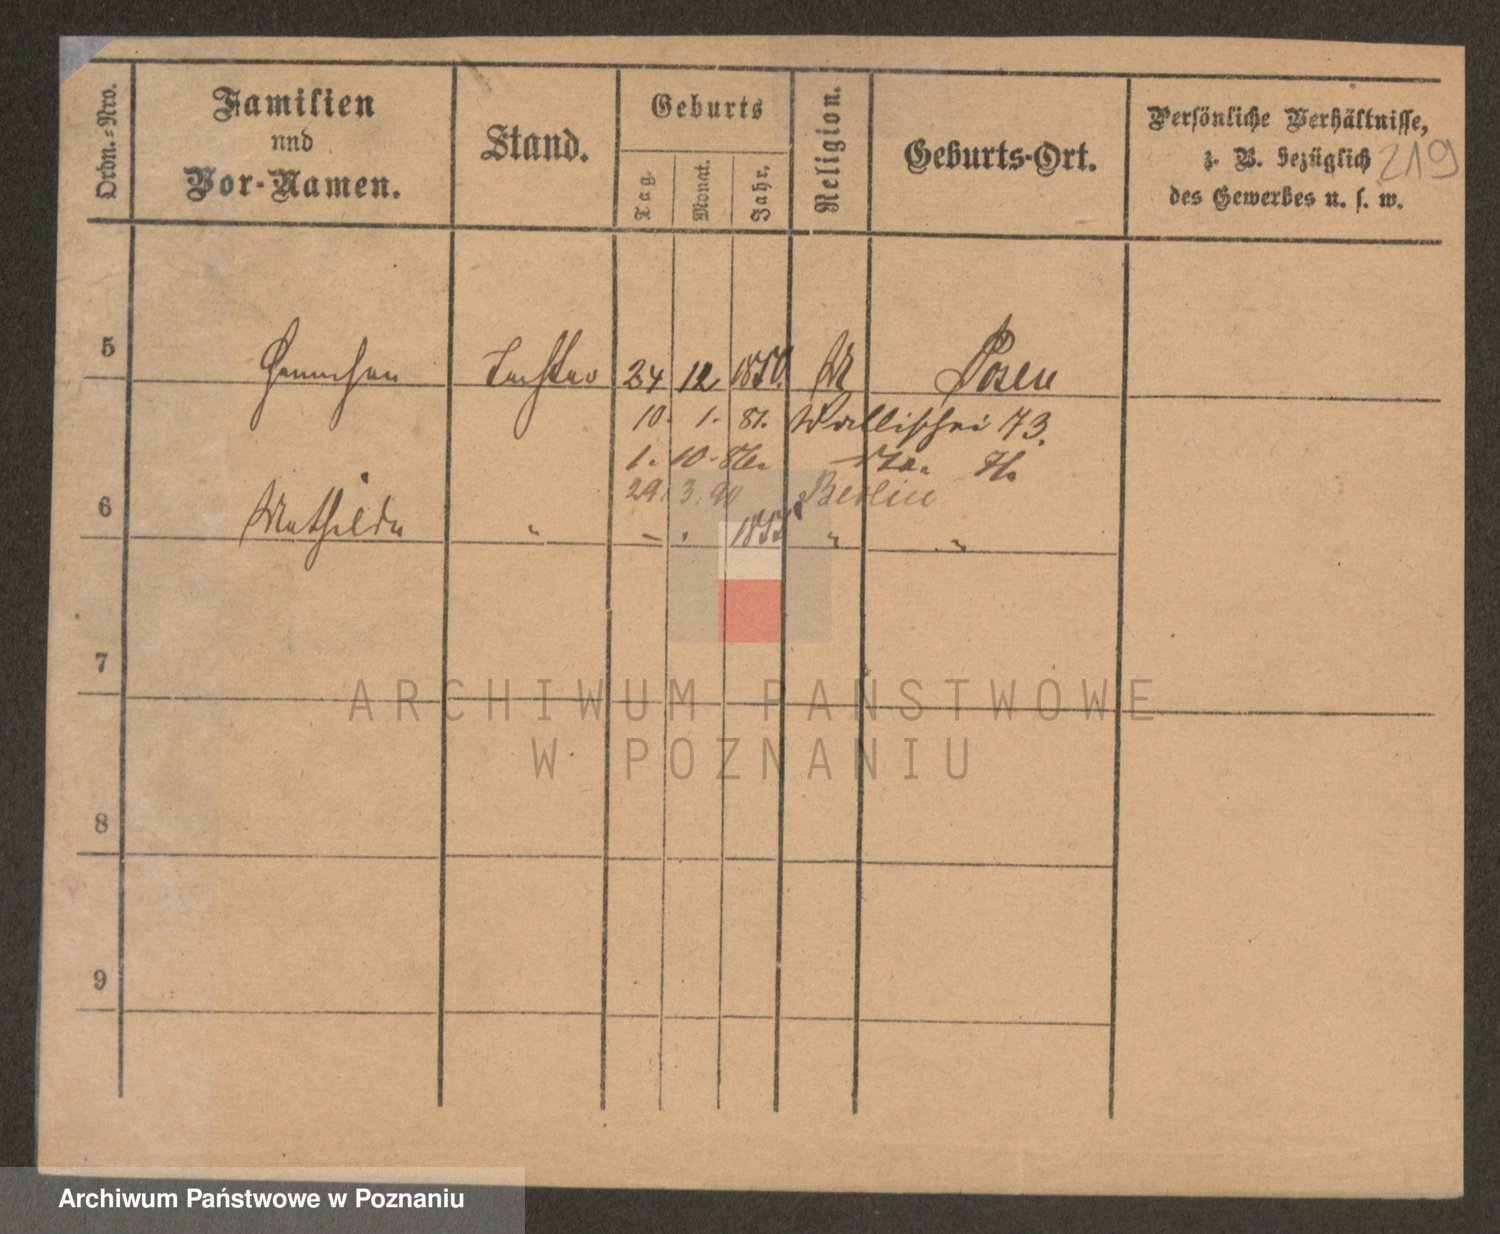 Ordn.=Nro.
Familien
und
Vor-Namen.
Stand.
Geburts
Tag.
Monat.
Jahr.
Religion.
Geburts-Ort.
Persönliche Verhältnisse,
z. B. bezüglich
des Gewerbes u. s. w.
219
5 Tochter 24 12 Posen
10. 1. 81. Wallischei 73.
1. 10. 86.
29. 3. 90 Berlin
6 Mathilde " "
7
8
9
ARCHIWUM PAŃSTWOWE
W POZNANIU
Archiwum Państwowe w Poznaniu